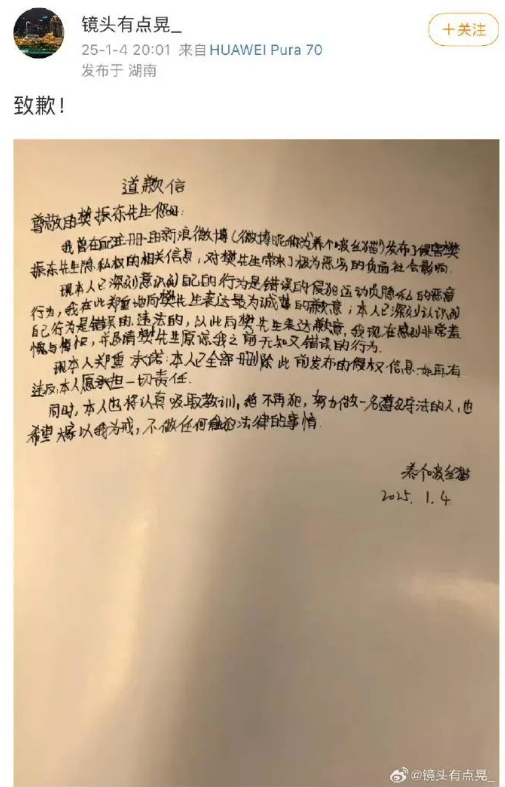 镜头有点晃_
+关注
25-1-4 20:01 来自 HUAWEI Pura 70
发布于 湖南
致歉！
道歉信
尊敬的樊振东先生您好：
我曾在 注册的新浪微博（微博昵称为养个啵丝猫）发布了侵害樊
振东先生隐私权的相关信息，对樊先生带来了极为恶劣的负面社会影响.
现本人已深刻意识到自己的行为是错误的侵犯运动员隐私的恶意
行为，我在此郑重地向樊先生表达最为诚挚的歉意；本人已深刻认识到
自己行为是错误的、违法的，以此向樊先生表达歉意，我现在感到非常羞
愧与悔恨，并恳请樊先生原谅我之前无知又错误的行为.
现本人郑重承诺：本人已全部删除此前发布的侵权信息.如再有
违反，本人愿承担一切责任.
同时，本人也将认真吸取教训，绝不再犯，努力做一名遵纪守法的人，也
希望大家以我为戒，不做任何触犯法律的事情.
养个啵丝猫
2025. 1. 4
@镜头有点晃_